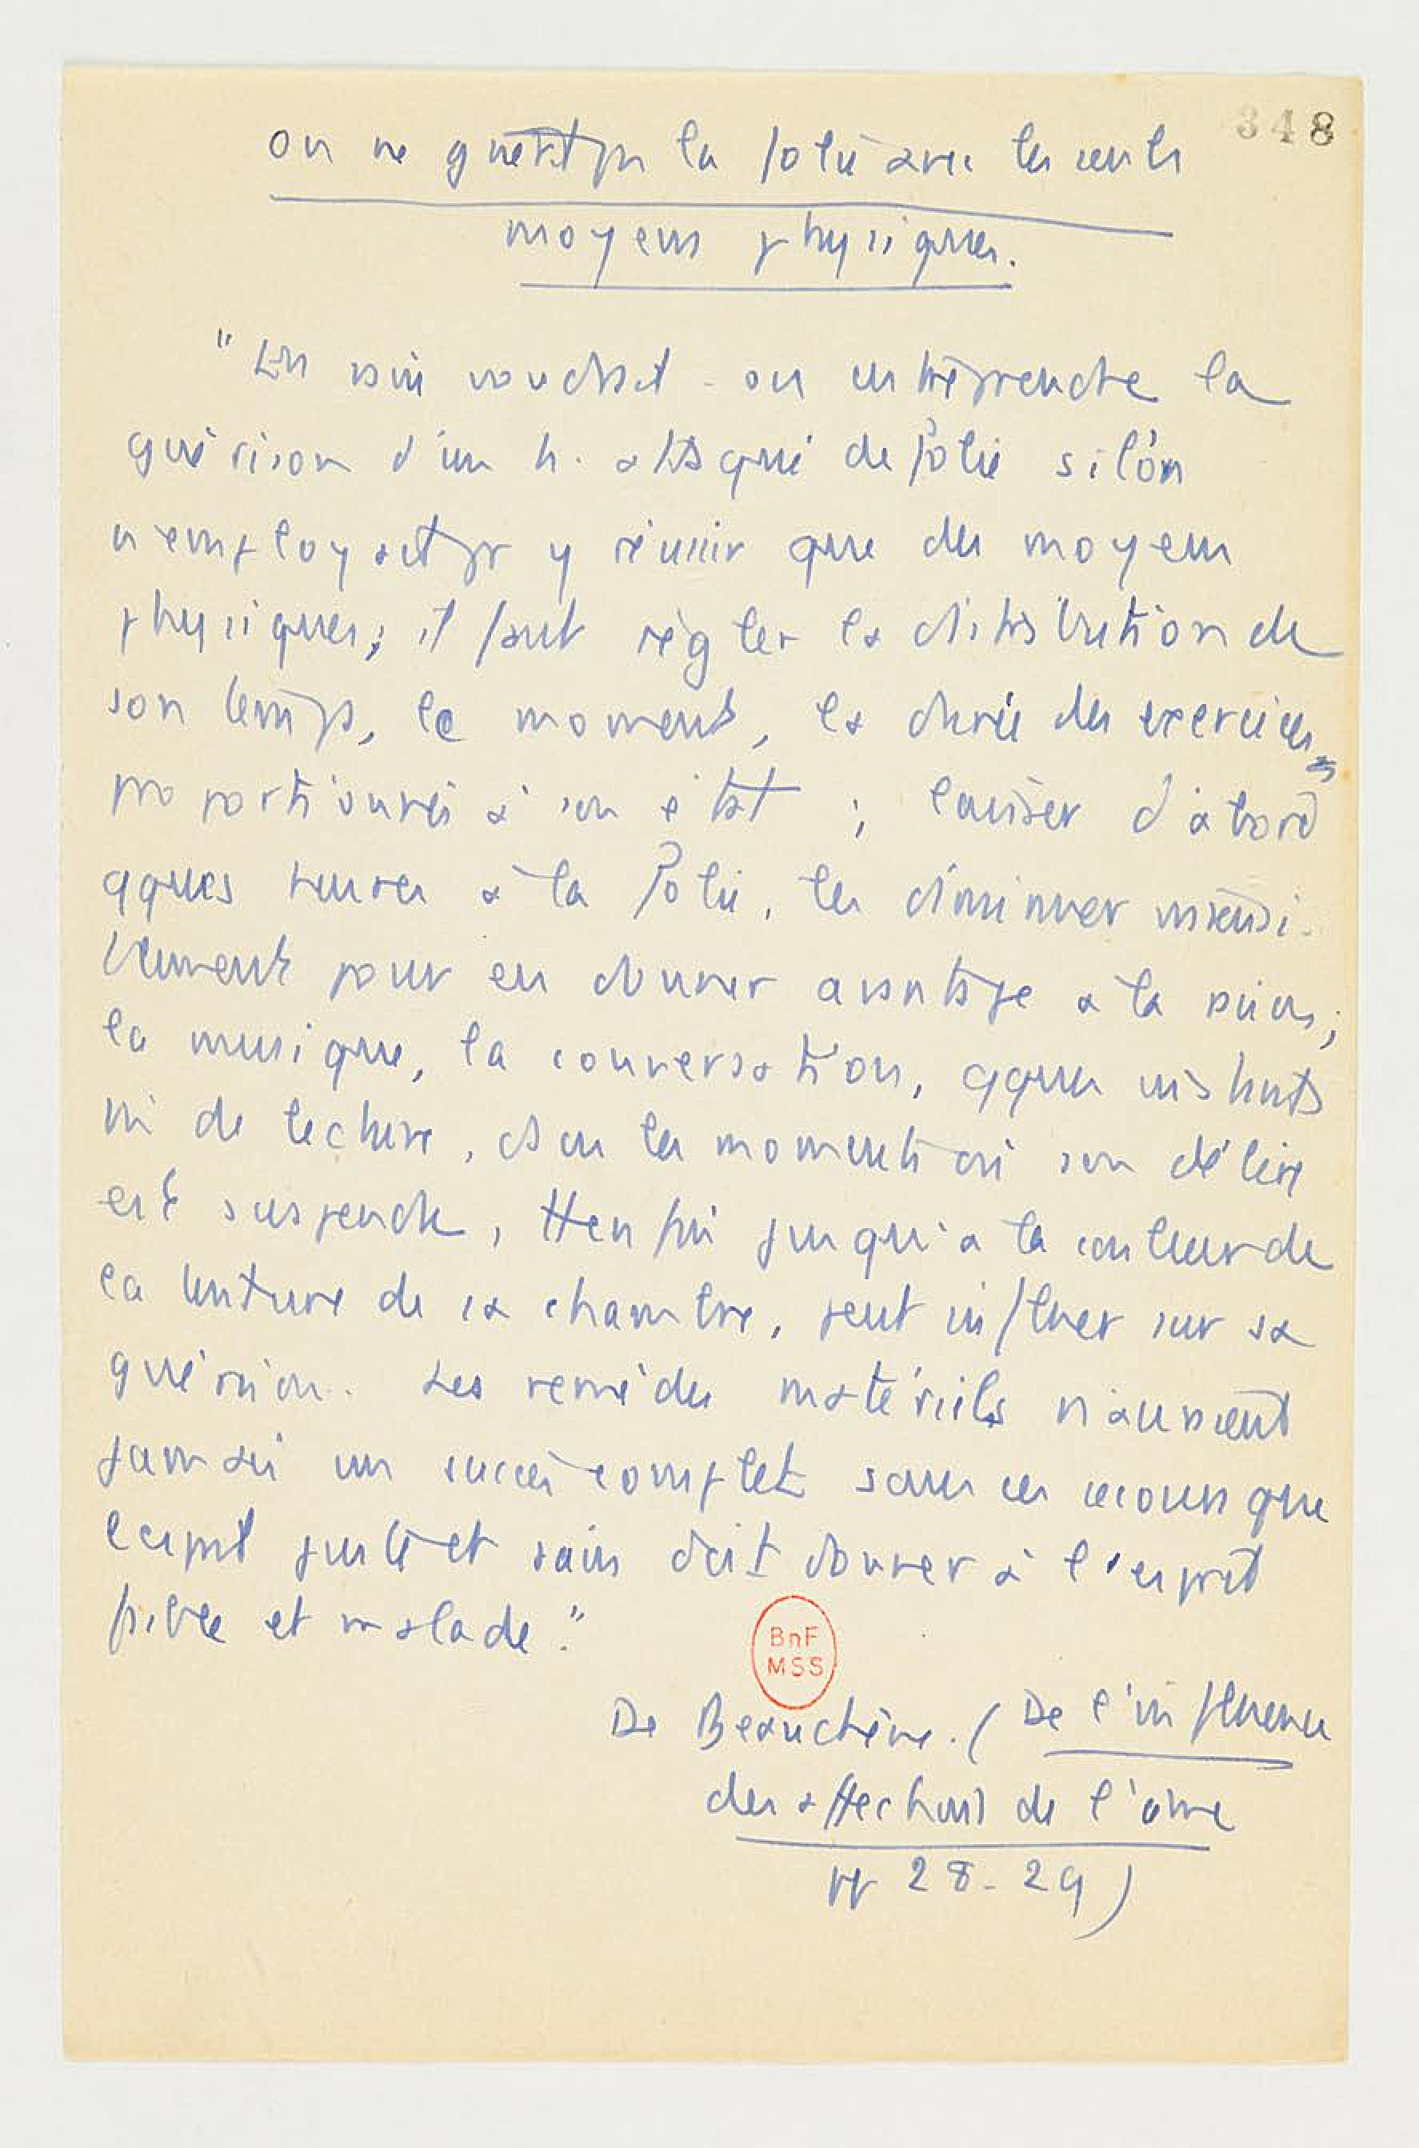 348
On ne guérit pas la folie avec les seuls
moyens physiques.
"En vain voudrait-on entreprendre la
guérison d'un h. attaqué de folie si l'on
n'employait pr y réussir que des moyens
physiques; il faut régler la distribution de
son temps, le moment, la durée des exercices
proportionnés à son état ; laisser d'abord
qques heures à la folie, les diminuer insensi-
blement pour en donner avantage à la raison;
la musique, la conversation, qques instants
de lecture, dans les moments où son délire
est suspendu, enfin jusqu'à la couleur de
la tenture de sa chambre, peut influer sur sa
guérison. Les remèdes matériels n'auraient
jamais un succès complet sans ces secours que
l'esprit juste et sain doit donner à l'esprit
faible et malade."
BnF
MSS
De Beauchêne. (De l'influence
des affections de l'âme
pp 28-29)